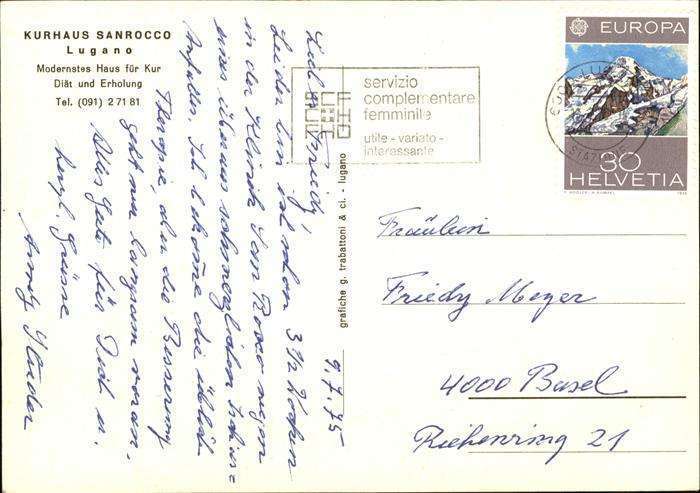 KURHAUS SANROCCO
Lugano
Modernstes Haus für Kur
Diät und Erholung
Tel. (091) 2 71 81
9.7.75
Liebe Friedy,
Leider bin ich schon 3½ Wochen
in der Klinik San Rocco wegen
eines überaus schmerzlichen Ischias-
Anfalles. Ich bekomme die übliche
Therapie, aber die Besserung
geht nur langsam voran.
Alles Gute für Dich u.
herzl. Grüsse
grafiche g. trabattoni & ci. - lugano
servizio
complementare
femminile
utile - variato -
interessante
EUROPA
30
HELVETIA
Fräulein
Friedy Meyer
4000 Basel
Riehenring 21